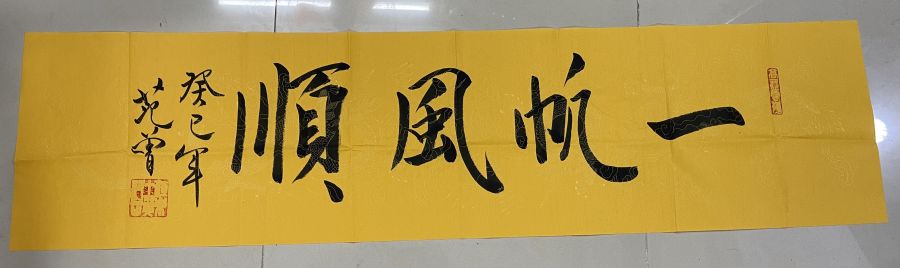 一帆風順
癸巳年
范曾